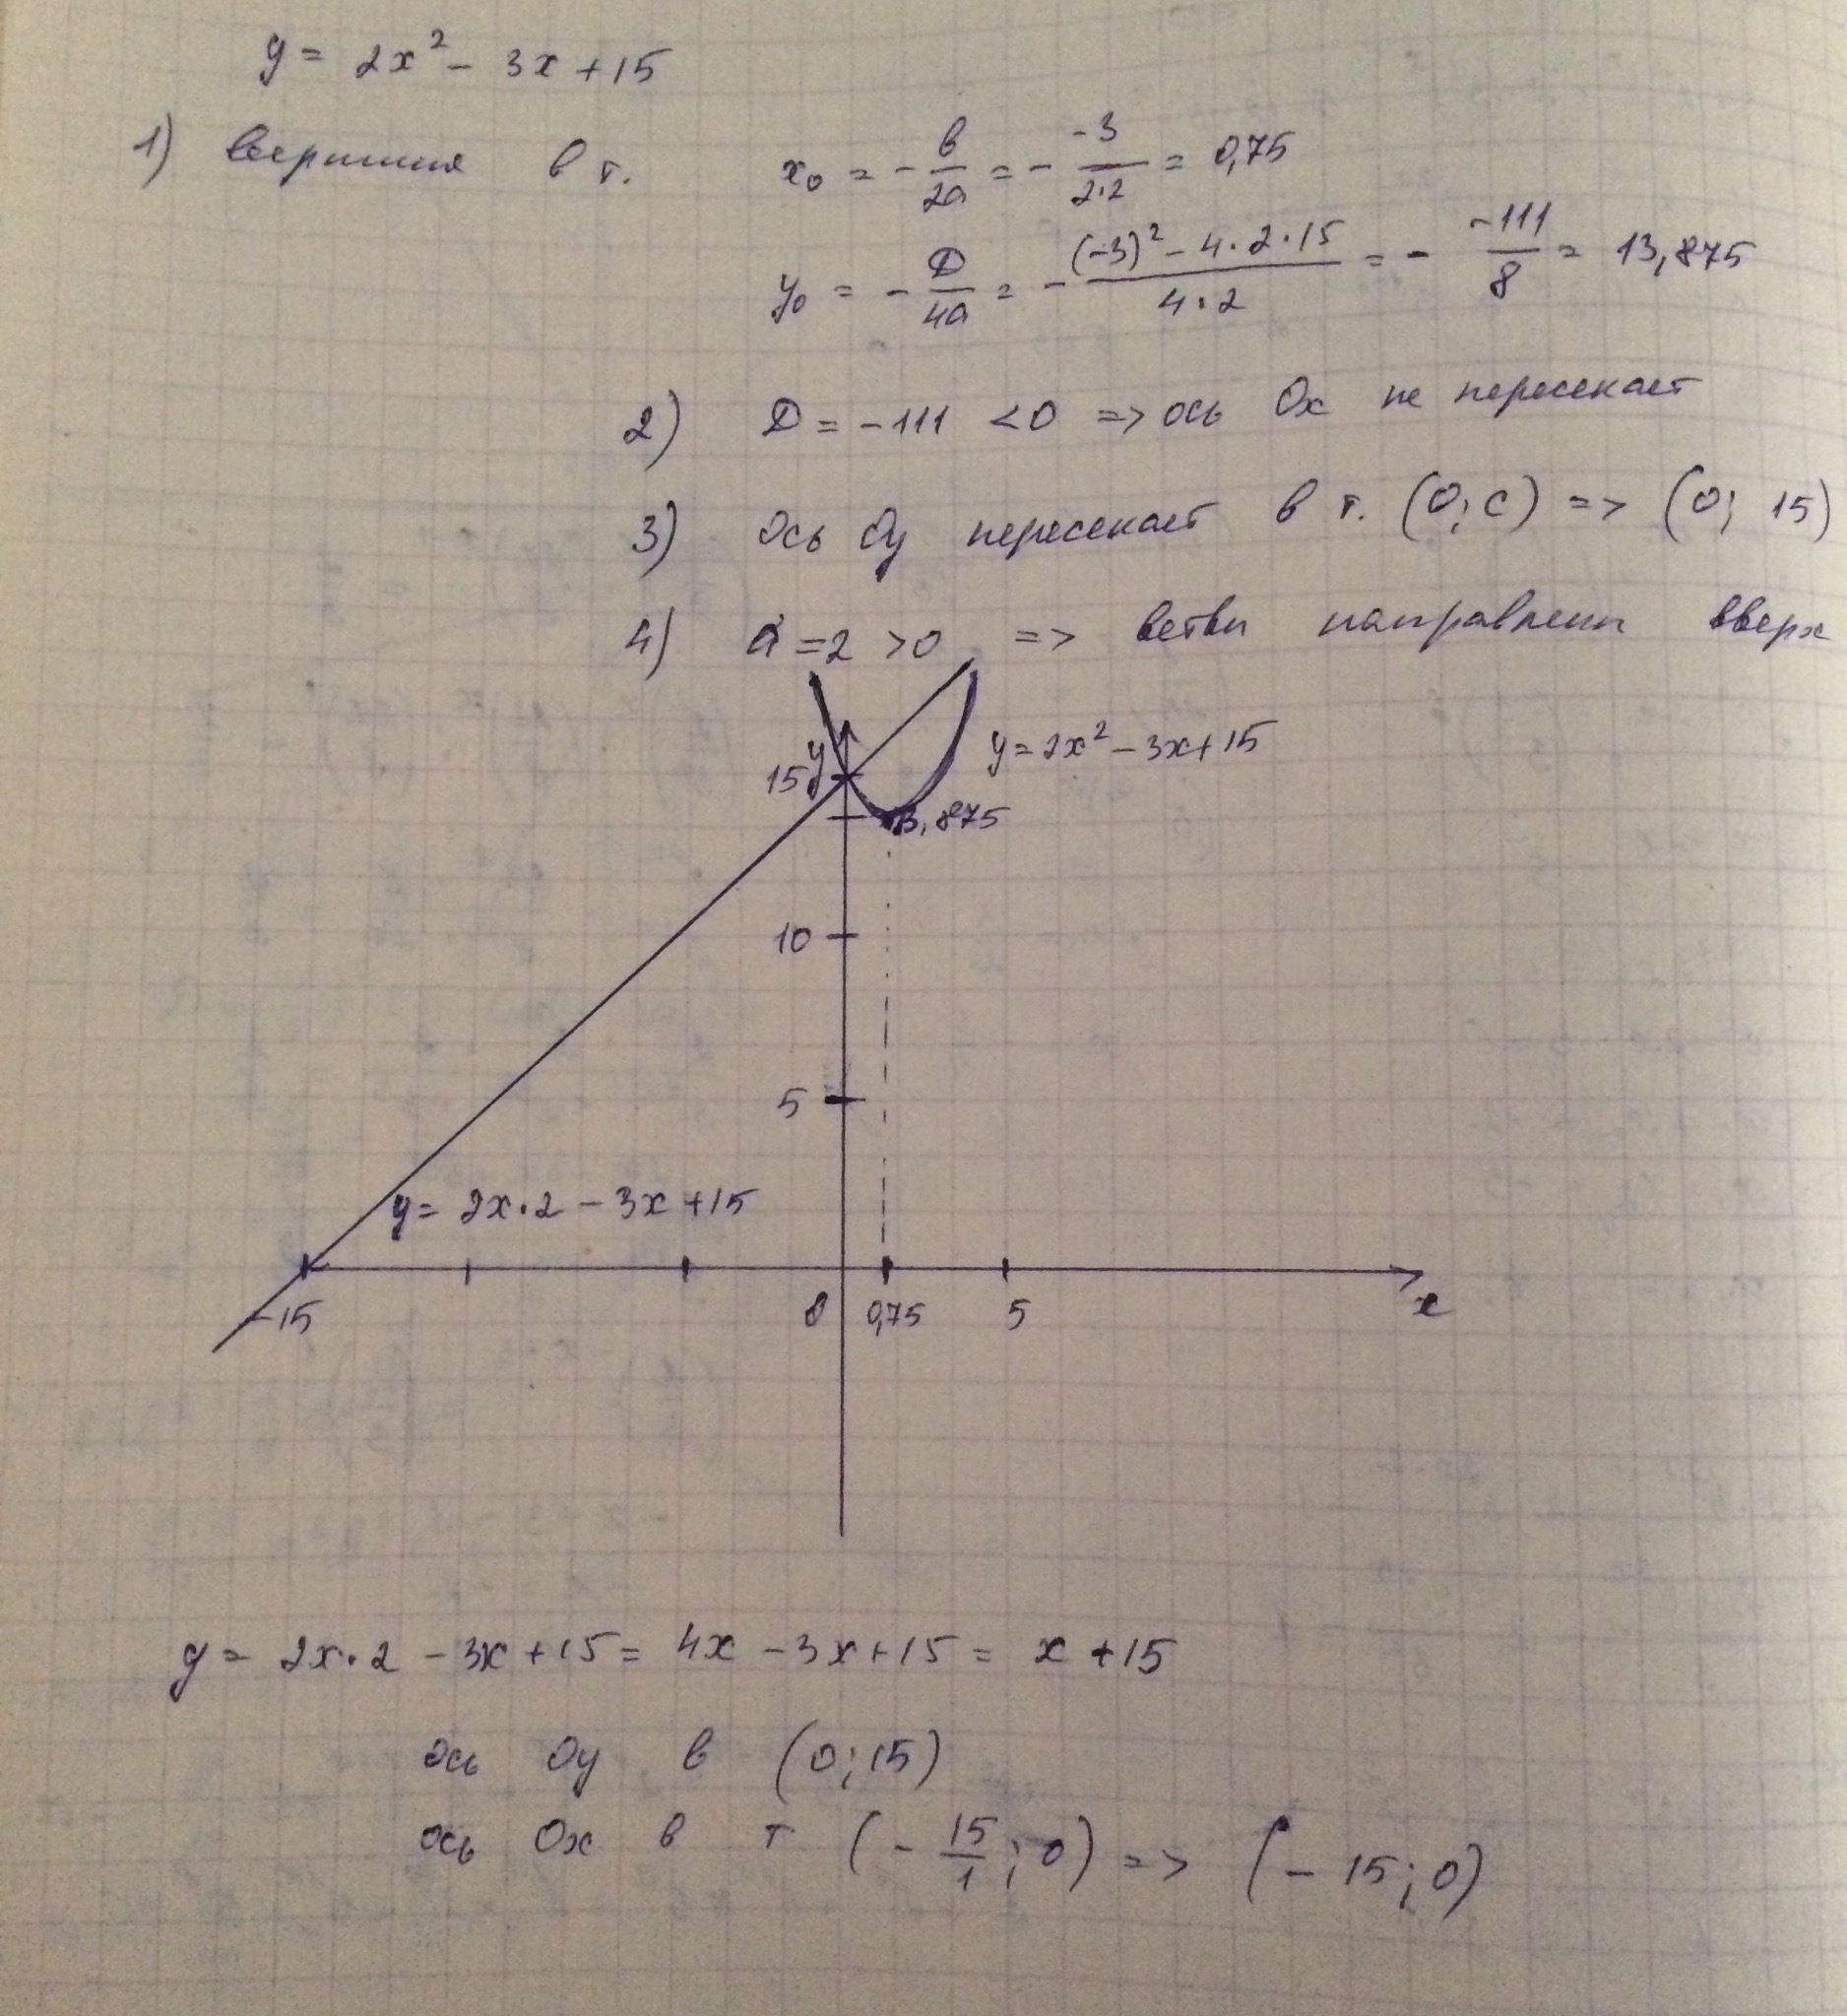 y = 2x² - 3x + 15
1) вершина в т. x₀ = - b/2a = - -3/2·2 = 0,75
y₀ = - D/4a = - (-3)² - 4·2·15/4·2 = - -111/8 = 13,875
2) D = -111 < 0 => ось Ox не пересекает
3) Ось Oy пересекает в т. (0; c) => (0; 15)
4) a = 2 > 0 => ветви направлены вверх
y
15
y = 2x² - 3x + 15
13,875
10
5
y = 2x·2 - 3x + 15
-15 0 0,75 5 x
y = 2x·2 - 3x + 15 = 4x - 3x + 15 = x + 15
ось Oy в (0; 15)
ось Ox в т (- 15/1; 0) => (- 15; 0)